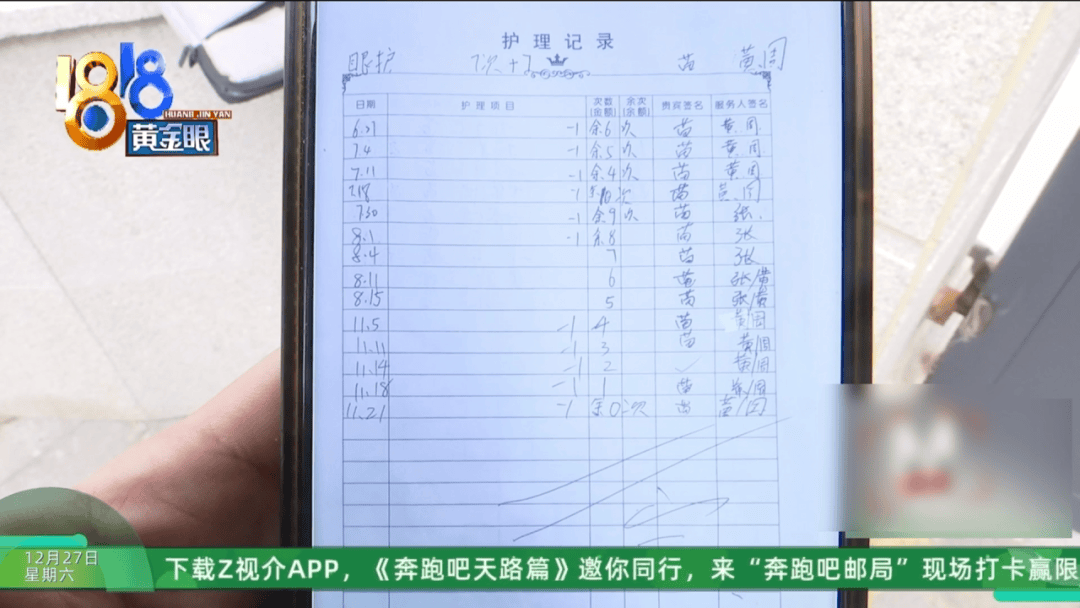 护理记录
眼护 7次+7 苗 黄.周
1818
HUANG JIN YAN
黄金眼
日期 护理项目 次数(金额) 余次(金额) 贵宾签名 服务人签名
6.27 -1 余6次 苗 黄.周
7.4 -1 余5次 苗 黄.周
7.11 -1 余4次 苗 黄.周
7.18 -1 10次 苗 黄.周
7.30 -1 余9次 苗 张.
8.1 -1 余8 苗 张
8.4 7 苗 张
8.11 6 苗 张/黄
8.15 5 苗 张/黄
11.5 -1 4 苗 黄/周
11.11 -1 3 苗 黄/周
11.14 -1 2 ✓ 黄/周
11.18 -1 1 苗 /周
11.21 -1 余0次 苗 黄/周
12月27日
星期六
下载Z视介APP，《奔跑吧天路篇》邀你同行，来“奔跑吧邮局”现场打卡赢限